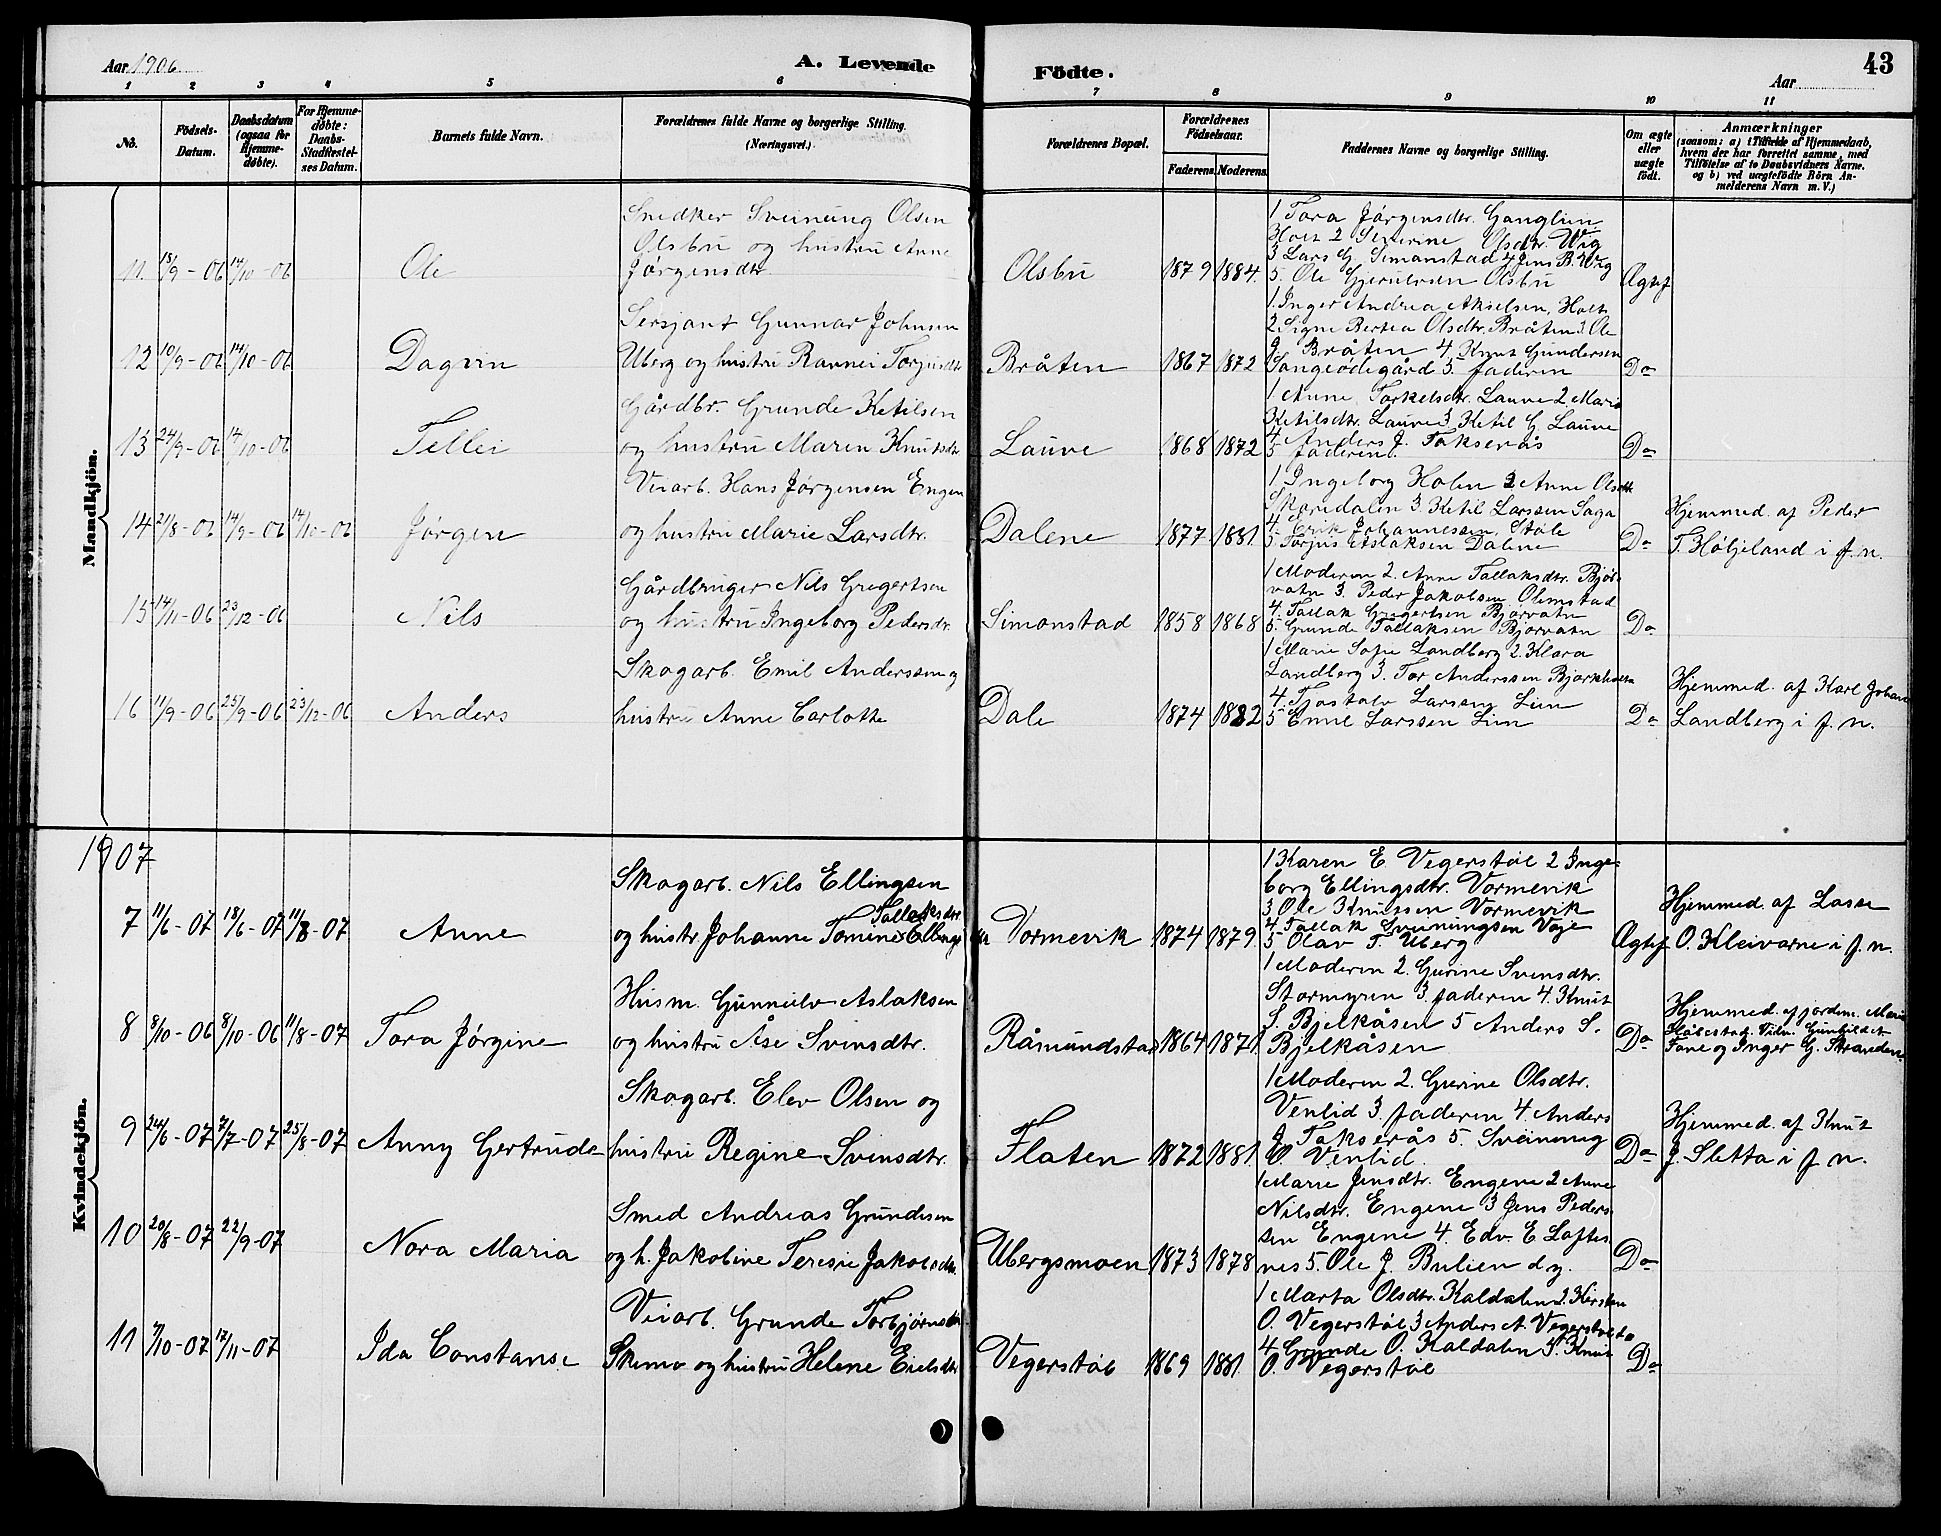 Aar 1906
A. Levende Födte.
Aar
43
1 2 3 4 5 6 7 8 9 10 11
No.
Födsels-Datum.
Daabsdatum (ogsaa for Hjemme-döbte).
For Hjemme-döbte: Daabs-Stadfæstel-ses Datum.
Barnets fulde Navn.
Forældrenes fulde Navne og borgerlige Stilling. (Næringsvei.)
Forældrenes Bopæl.
Forældrenes Födselsaar.
Faderens. Moderens.
Faddernes Navne og borgerlige Stilling.
Om ægte eller uægte födt.
Anmærkninger
(saasom: a) i Tilfælde af Hjemmedaab,
hvem der har forrettet samme, med
Tilföielse af to Daabsvidners Navne.
og b) ved uægtefödte Börn An-
melderens Navn m. V.)
Mandkjön.
11. 18/9-06 14/10-06
Ole
Snedker Sveinung Olsen
Olsbu og hustru Anne
Jørgensdtr.
Olsbu
1879 1884.
1 Tora Jørgensdtr. Ganglien
Holt 2 Severine Olsdtr. Vig
3 Lars G. Simonstad 4 Jens B. Vig
5. Ole Gjerulvsen Olsbu
Ægtef
12 10/9-06 14/10-06
Dagvin
Sersjant Gunnar Johnsen
Uberg og hustru Ravnei Torjusdtr
Bråten
1867 1872
1. Inger Andrea Akselsen, Holt
2 Signe Bertea Olsdtr. Bråten 3. Ole
J. Bråten 4. Knut Gundersen
Sangeødegård 5. faderen
Do
13 24/9-06 14/10-06
Tellei
Gårdbr. Grunde Ketilsen
og hustru Maren Knutsdtr
Lauve
1868 1872
1 Anne Torkelsdtr. Lauve 2 Maria
Ketilsdtr. Lauve 3. Ketil G Lauve
4. Anders J. Takserås
5 faderen.
Do
14 21/8-06 14/9-06 14/10-06
Jørgen
Veiarb. Hans Jørgensen Engen
og hustru Marie Larsdtr.
Dalene
1877 1881.
1. Ingeborg Holen 2 Anne Olsdtr
Skaredalen 3. Ketil Larssen Saga
4. Erik Johannessen Støle
5 Torjus Aslaksen Dalene
Do
Hjemmed. af Peder
T. Høljeland i f. n.
15 14/11-06 23/12-06
Nils
Gårdbruger Nils Gregertsen
og hustru Ingeborg Pedersdtr.
Simonstad
1858 1868
1 Moderen 2. Anne Tallaksdtr. Bjør-
vatn 3. Peder Jakobsen Olimstad
4. Tallak Gregertsen Bjørvatn
5. Grunde Tallaksen Bjørvatn
Do
16 11/9-06 25/9-06 23/12-06
Anders
Skogarb. Emil Anderssen og
hustru Anne Carlotte
Dale
1874 1882
1 Marie Sofie Landberg 2. Klara
Landberg 3. Tor Anderssen Bjørkholta
4. Tjøstolv Larsen Lien
5 Emil Larssen Lien
Do
Hjemmed. af Karl Johan
Landberg i f. n.
1907
Kvindekjön.
7 11/6-07 18/6-07 11/8-07
Anne
Skogarb. Nils Ellingsen
Tallaksdtr
og hustr. Johanne Tomine Ellingsdtr
Vormevik
1874 1879.
1 Karen E. Vegerstøl 2 Inge-
borg Ellingsdtr. Vormevik
3 Ole Knutsen Vormevik
4 Tallak Sveinungsen Voje
5 Olav T. Uberg
Ægtef
Hjemmed. af Lasse
O. Kleivarne i f. n.
8 8/10-06 8/10-06 11/8-07
Tora Jørgine
Husm. Gunnulv Aslaksen
og hustru Åse Svensdtr.
Råmundstad
1864 1871.
1 Moderen 2. Gurine Svensdtr.
Stormyren 3. faderen 4. Knut
S. Bjelkåsen 5 Anders S.
Bjelkåsen
Do
Hjemmed. af jordm. Marie
Høbestad. Vidn. Gunhild A.
Tane og Inger G. Stranden.
9 24/6-07 7/7-07 25/8-07
Anny Gertrude
Skogarb. Elev Olsen og
hustru Regine Svensdtr.
Flaten
1872 1881.
1 Moderen 2. Gurine Olsdtr.
Venlid 3. faderen 4 Anders
J. Takserås 5. Sveinung
O. Venlid.
Do
Hjemmed. af Knut
J. Sletta i f. n.
10 20/8-07 22/9-07
Nora Maria
Smed Andreas Grundesen
og h. Jakobine Teresie Jakobsdtr.
Ubergsmoen
1873 1878
1 Marie Jensdtr. Engene 2 Anne
Nilsdtr. Engene 3 Jens Peders
sen Engene 4. Edv. E Loftes
nes 5. Ole J. Bulien d.y.
Do
11 7/10-07 17/11-07
Ida Constanse
Veiarb. Grunde Torbjørnsen
Skimo og hustru Helene Eielsdtr
Vegerstøl
1869 1881.
1 Marta Olsdtr. Kaldalen 2. Kirsten
O. Vegerstøl 3 Anders A. Vegerstøl
4 Grunde O. Kaldalen 5. Knut
O. Vegerstøl
Do